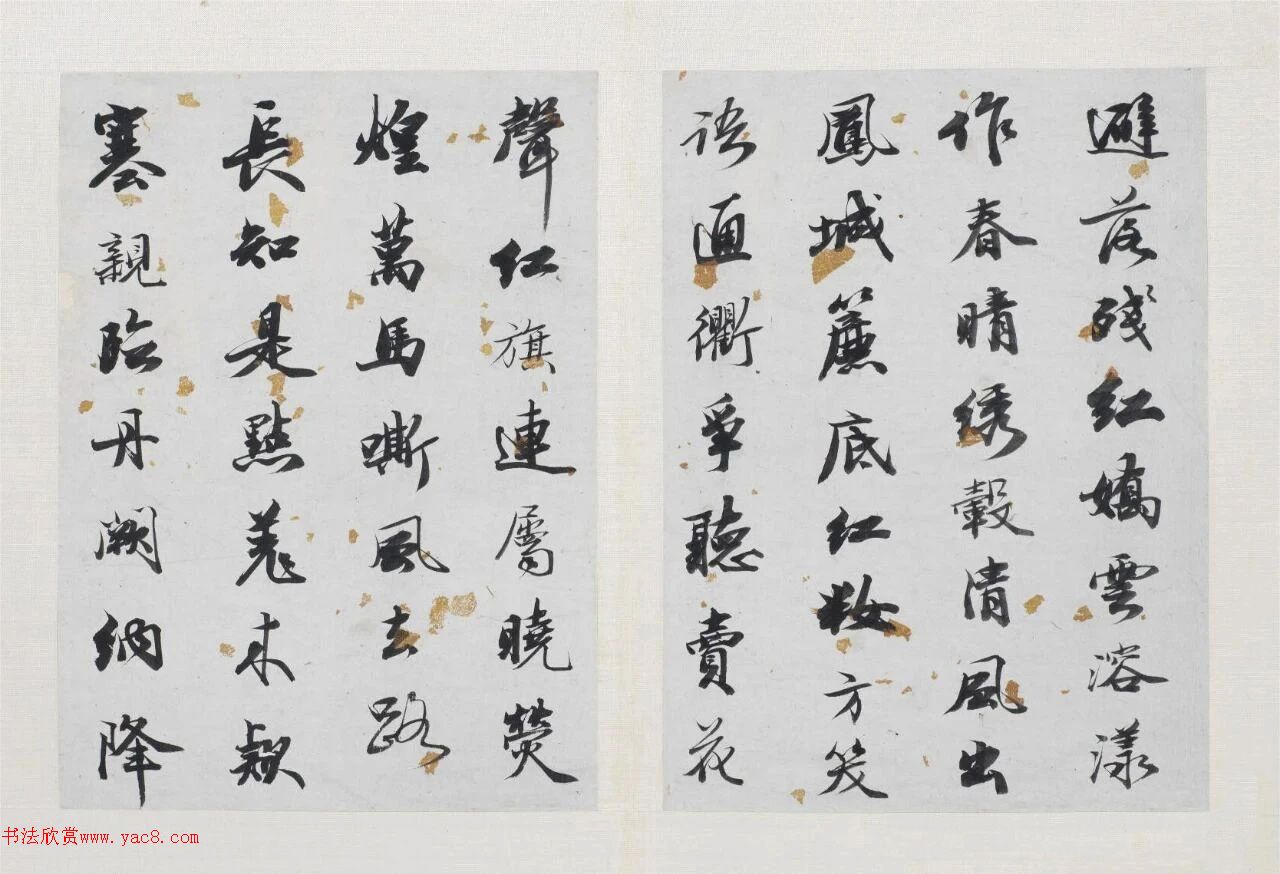 避落殘紅嬌雲溶漾
作春晴綉轂清風出
鳳城簾底紅妝方笑
語通衢爭聽賣花
聲紅旗連屬曉熒
煌萬馬嘶風去路
長知是黠羌來款
塞親臨丹闕納降
书法欣赏www.yac8.com